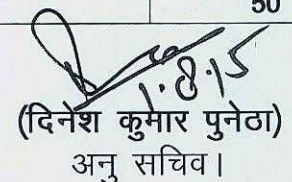 50
1.8.15
(दिनेश कुमार पुनेठा)
अनु सचिव।